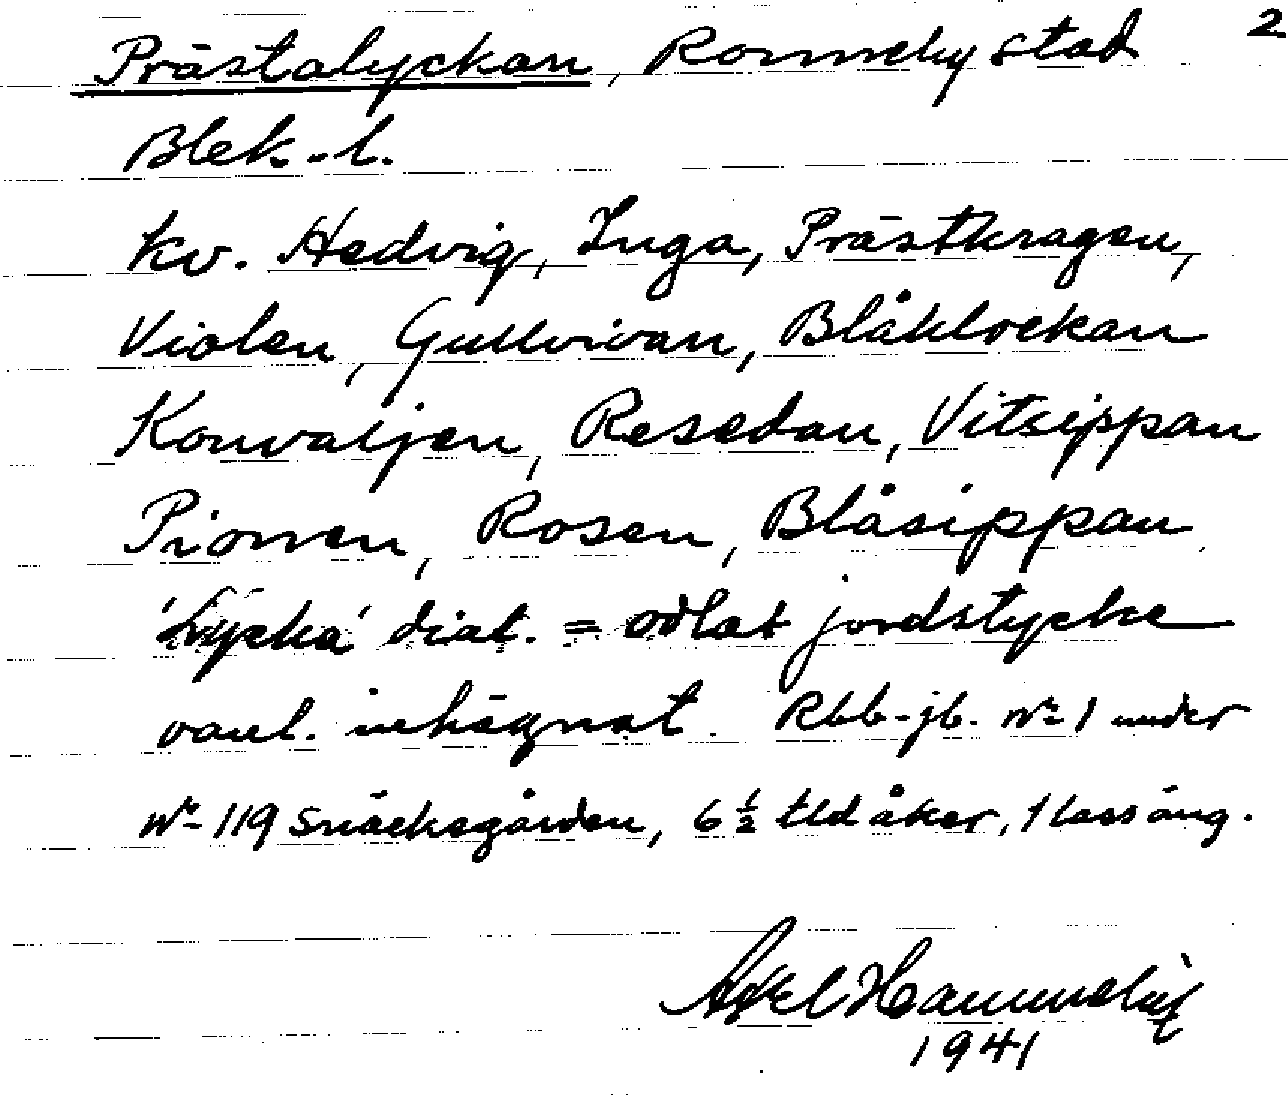 Prästalyckan, Ronneby stad 2
Blek. l.
Kv. Hedvig, Inga, Prästkragen,
Violen, Gullvivan, Blåklockan
Konvaljen, Resedan, Vitsippan
Pionen, Rosen, Blåsippan
'Lycka' dial. = odlat jordstycke
vanl. inhägnat. Rbb-jb. Nr 1 under
Nr 119 Snäckegården, 6 ½ tld åker, 1 lass äng.
Axel
1941